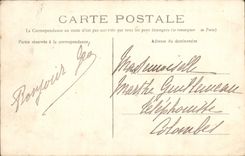 CARTE POSTALE
La Correspondance au recto n'est pas acceptée par tous les pays étrangers (se renseigner à la Poste)
Partie réservée à la correspondance.
Adresse du destinataire
Bonjour
Mademoiselle
Marthe
Téléphoniste
Colombes